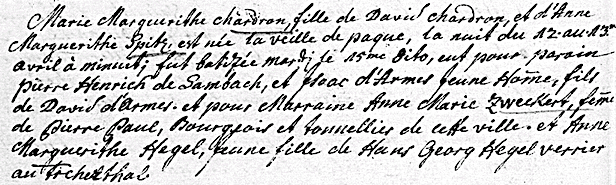 Marie Marguerithe chardron, fille de David chardron, et d'Anne
Marguerithe Spitz, est née la veille de paque, la nuit du 12 au 13me
avril à minuit; fut batizée mardi le 15me dito, eut pour parain
pierre Henrich de Lambach, et Isaac d'Armes jeune Home, fils
de David d'Armes. et pour Marraine Anne Marie Zweckert, feme
de pierre Paul, Bourgeois et tonnellier de cette ville. et Anne
Marguerithe Hegel, jeune fille de Hans Georg Hegel verrier
au